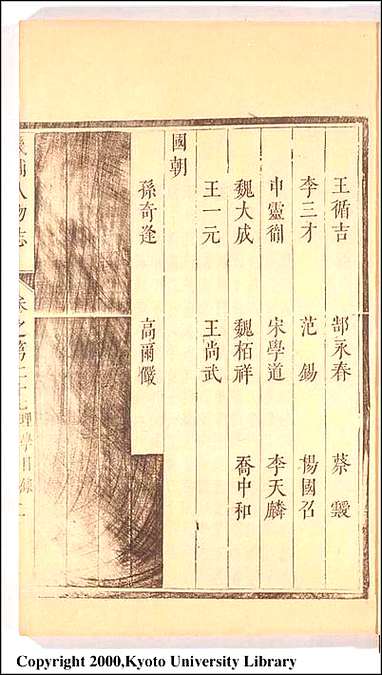 王循吉 郜永春 蔡靉
李三才 范錫 楊國召
申靈 宋學道 李天麟
魏大成 魏栢祥 喬中和
王一元 王尚武
國朝
孫奇逢 高爾儼
畿輔人物志 卷之第二十七 理學目錄
Copyright 2000,Kyoto University Library